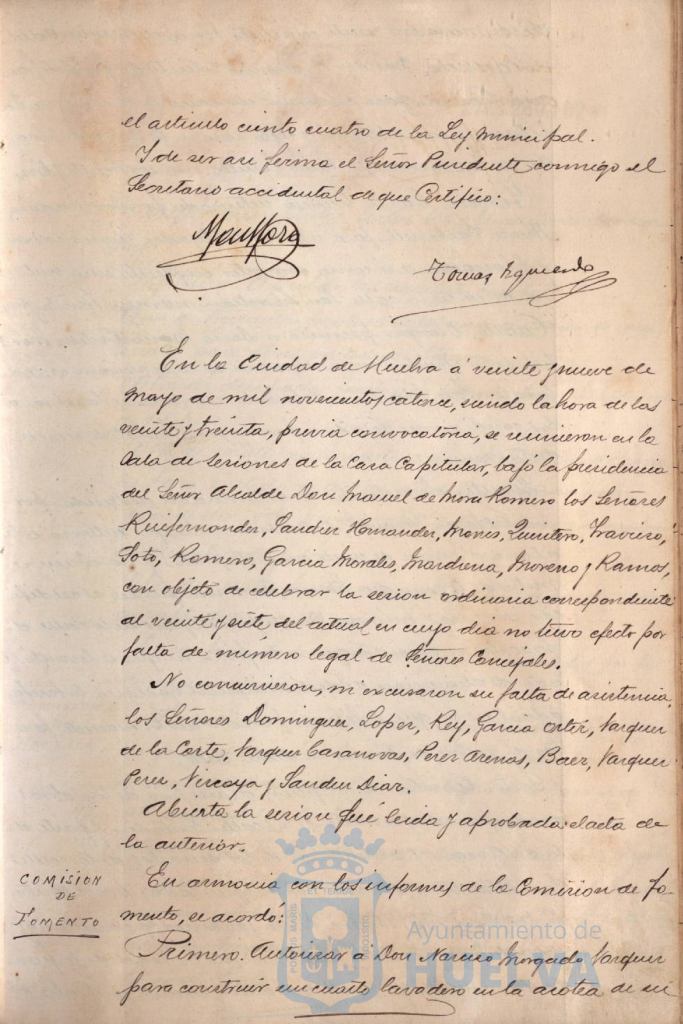 el articulo ciento cuatro de la Ley Municipal.
Y de ser asi firma el Señor Presidente conmigo el
Secretario accidental de que Certifico:
Tomas Izquierdo
En la Ciudad de Huelva á veinte y nueve de
Mayo de mil novecientos catorce, siendo la hora de las
veinte y treinta, previa convocatoria, se reunieron en la
Sala de Sesiones de la Casa Capitular, bajo la presidencia
del Señor Alcalde Don Manuel de Mora Romero los Señores
Ruifernandez, Sanchez Hernandez, Monis, Quintero, Travieso,
Soto, Romero, Garcia Morales, Mardrena, Moreno y Ramos,
con objeto de celebrar la sesion ordinaria correspondiente
al veinte y siete del actual en cuyo dia no tuvo efecto por
falta de número legal de Señores Concejales.
No concurrieron, ni excusaron su falta de asistencia,
los Señores Dominguez, Lopez, Rey, Garcia Ortiz, Vazquez
de la Corte, Vazquez Casanovas, Perez Arenas, Baez, Vazquez
Perez, Vizcaya y Sanchez Diaz.
Abierta la sesion fué leida y aprobada el acta de
la anterior.
COMISION
DE
FOMENTO
En armonia con los informes de la Comision de Fo-
mento, se acordó:
Primero. Autorizar á Don Narciso Morgado Vazquez
para construir un cuarto lavadero en la azotea de su
Ayuntamiento de
HUELVA